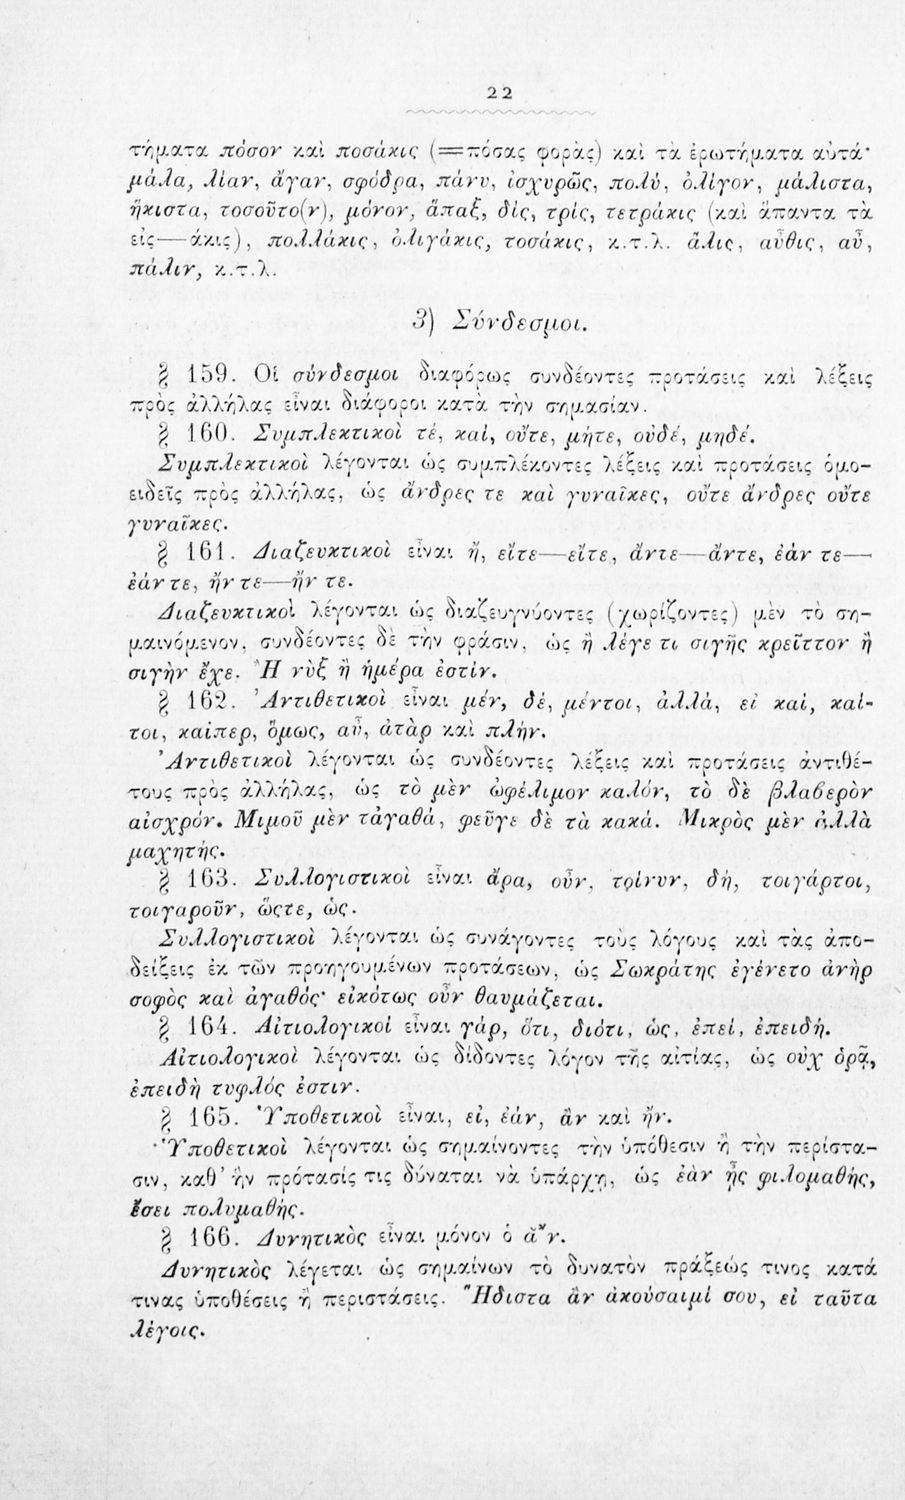 22
τήματα πόσον καὶ ποσάκις (=πόσας φορὰς) καὶ τὰ ἐρωτήματα αὐτά·
μάλα, λίαν, ἄγαν, σφόδρα, πάνυ, ἰσχυρῶς, πολύ, ὀλίγον, μάλιστα,
ἥκιστα, τοσοῦτο(ν), μόνον, ἅπαξ, δίς, τρίς, τετράκις (καὶ ἅπαντα τὰ
εἰς—άκις), πολλάκις, ὀλιγάκις, τοσάκις, κ.τ.λ. ἅλις, αὖθις, αὖ,
πάλιν, κ.τ.λ.
3) Σύνδεσμοι.
§ 159. Οἱ σύνδεσμοι διαφόρως συνδέοντες προτάσεις καὶ λέξεις
πρὸς ἀλλήλας εἶναι διάφοροι κατὰ τὴν σημασίαν.
§ 160. Συμπλεκτικοὶ τέ, καί, οὔτε, μήτε, οὐδέ, μηδέ.
Συμπλεκτικοὶ λέγονται ὡς συμπλέκοντες λέξεις καὶ προτάσεις ὁμο-
ειδεῖς πρὸς ἀλλήλας, ὡς ἄνδρες τε καὶ γυναῖκες, οὔτε ἄνδρες οὔτε
γυναῖκες.
§ 161. Διαζευκτικοὶ εἶναι ἤ, εἴτε—εἴτε, ἄντε—ἄντε, ἐάν τε—
ἐάν τε, ἤν τε—ἤν τε.
Διαζευκτικοὶ λέγονται ὡς διαζευγνύοντες (χωρίζοντες) μὲν τὸ ση-
μαινόμενον, συνδέοντες δὲ τὴν φράσιν, ὡς ἢ λέγε τι σιγῆς κρεῖττον ἢ
σιγὴν ἔχε. Ἢ νὺξ ἢ ἡμέρα ἐστίν.
§ 162. Ἀντιθετικοὶ εἶναι μέν, δέ, μέντοι, ἀλλά, εἰ καί, καί-
τοι, καίπερ, ὅμως, αὖ, ἀτὰρ καὶ πλήν.
Ἀντιθετικοὶ λέγονται ὡς συνδέοντες λέξεις καὶ προτάσεις ἀντιθέ-
τους πρὸς ἀλλήλας, ὡς τὸ μὲν ὠφέλιμον καλόν, τὸ δὲ βλαβερὸν
αἰσχρόν. Μιμοῦ μὲν τἀγαθά, φεῦγε δὲ τὰ κακά. Μικρὸς μὲν ἀλλὰ
μαχητής.
§ 163. Συλλογιστικοὶ εἶναι ἄρα, οὖν, τοίνυν, δή, τοιγάρτοι,
τοιγαροῦν, ὥςτε, ὡς.
Συλλογιστικοὶ λέγονται ὡς συνάγοντες τοὺς λόγους καὶ τὰς ἀπο-
δείξεις ἐκ τῶν προηγουμένων προτάσεων, ὡς Σωκράτης ἐγένετο ἀνὴρ
σοφὸς καὶ ἀγαθός· εἰκότως οὖν θαυμάζεται.
§ 164. Αἰτιολογικοί εἶναι γάρ, ὅτι, διότι, ὡς, ἐπεί, ἐπειδή.
Αἰτιολογικοὶ λέγονται ὡς δίδοντες λόγον τῆς αἰτίας, ὡς οὐχ ὁρᾷ,
ἐπειδὴ τυφλός ἐστιν.
§ 165. Ὑποθετικοὶ εἶναι, εἰ, ἐάν, ἂν καὶ ἤν.
Ὑποθετικοὶ λέγονται ὡς σημαίνοντες τὴν ὑπόθεσιν ἢ τὴν περίστα-
σιν, καθ' ἣν πρότασίς τις δύναται νὰ ὑπάρχῃ, ὡς ἐὰν ᾖς φιλομαθής,
ἔσει πολυμαθής.
§ 166. Δυνητικὸς εἶναι μόνον ὁ ἄν.
Δυνητικὸς λέγεται ὡς σημαίνων τὸ δυνατὸν πράξεώς τινος κατά
τινας ὑποθέσεις ἢ περιστάσεις. Ἥδιστα ἂν ἀκούσαιμί σου, εἰ ταῦτα
λέγοις.